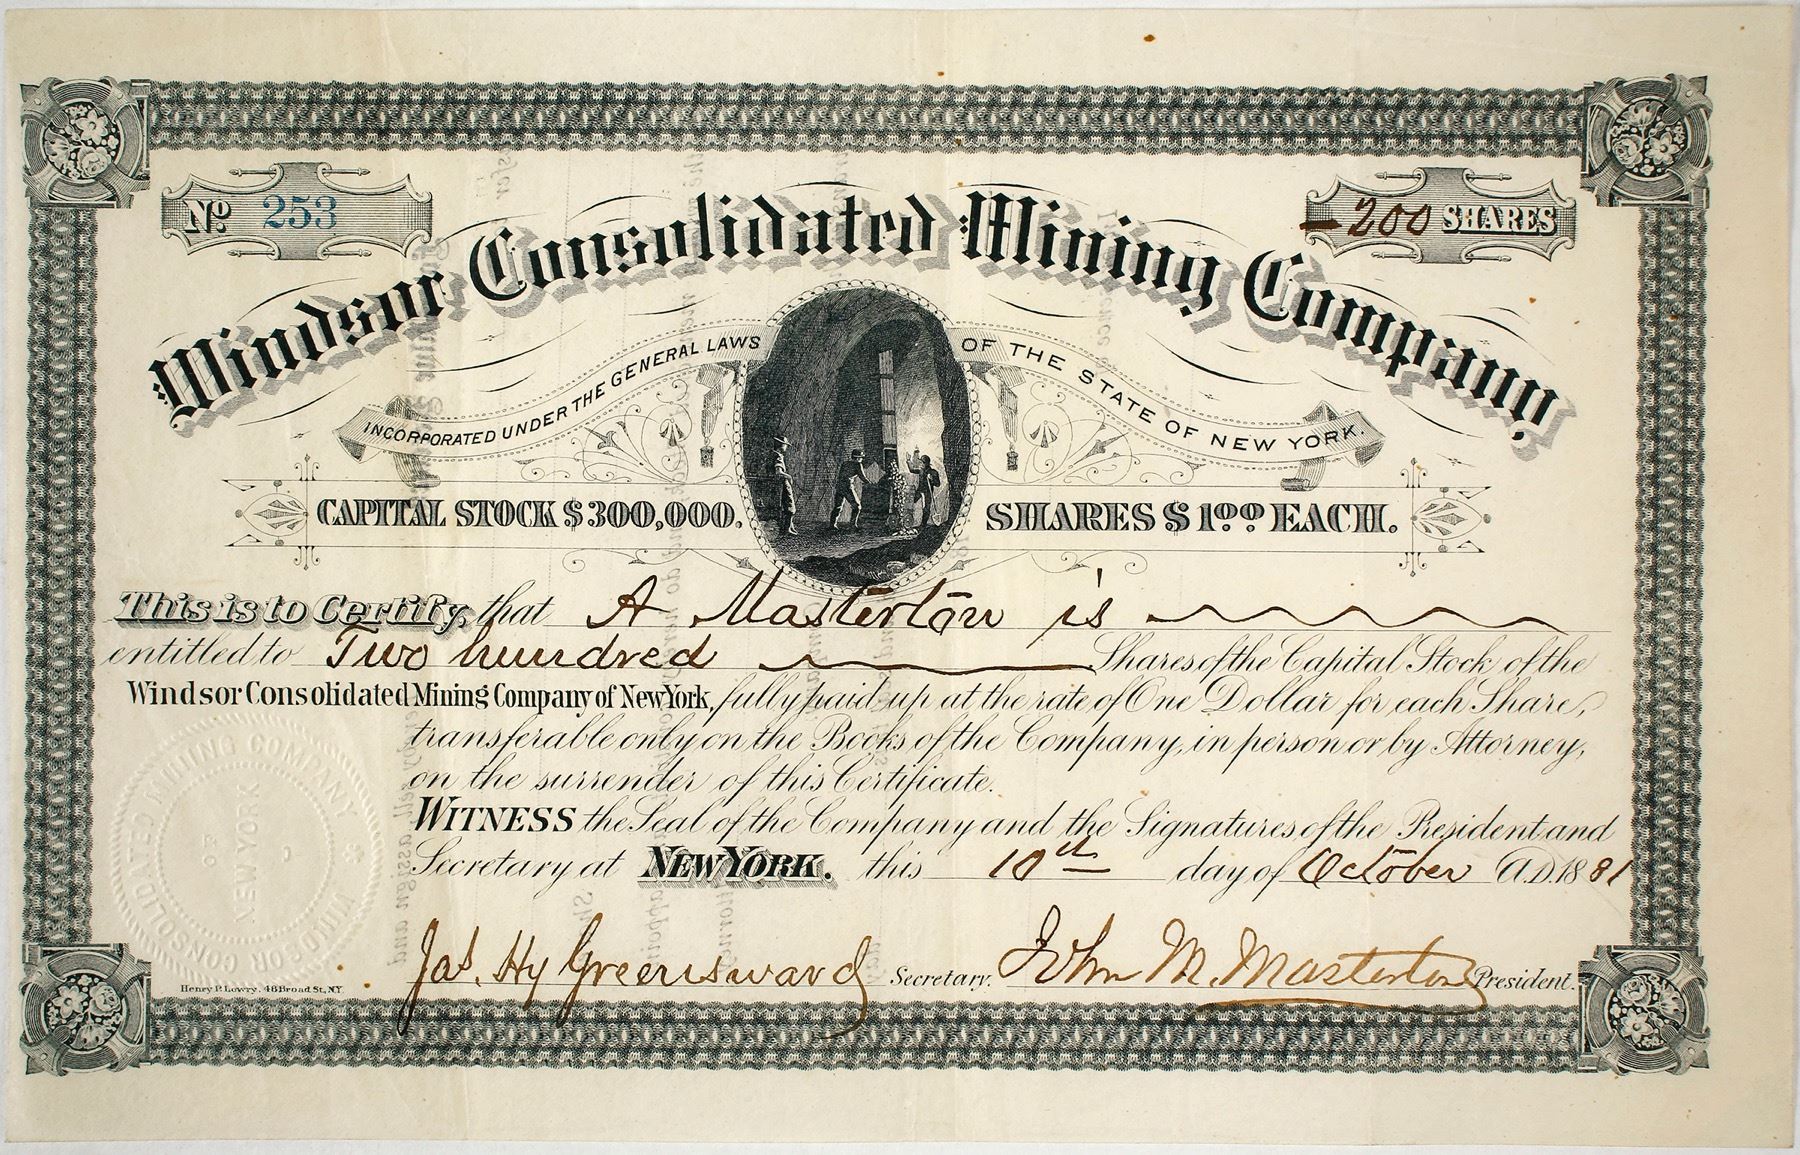 No 253
200 SHARES
Windsor Consolidated Mining Company,
INCORPORATED UNDER THE GENERAL LAWS OF THE STATE OF NEW YORK.
CAPITAL STOCK $300,000. SHARES $1.00 EACH.
This is to Certify, that A Masterton is
entitled to Two hundred Shares of the Capital Stock of the
Windsor Consolidated Mining Company of New York, fully paid up at the rate of One Dollar for each Share,
transferable only on the Books of the Company, in person or by Attorney,
on the surrender of this Certificate.
WITNESS the Seal of the Company and the Signatures of the President and
Secretary at NEW YORK. this 10th day of October A.D. 1881
WINDSOR CONSOLIDATED MINING COMPANY
OF
NEW YORK
Jas. Hy Greensward Secretary. John M. Masterton President.
Henry P. Lowry. 48 Broad St., N.Y.